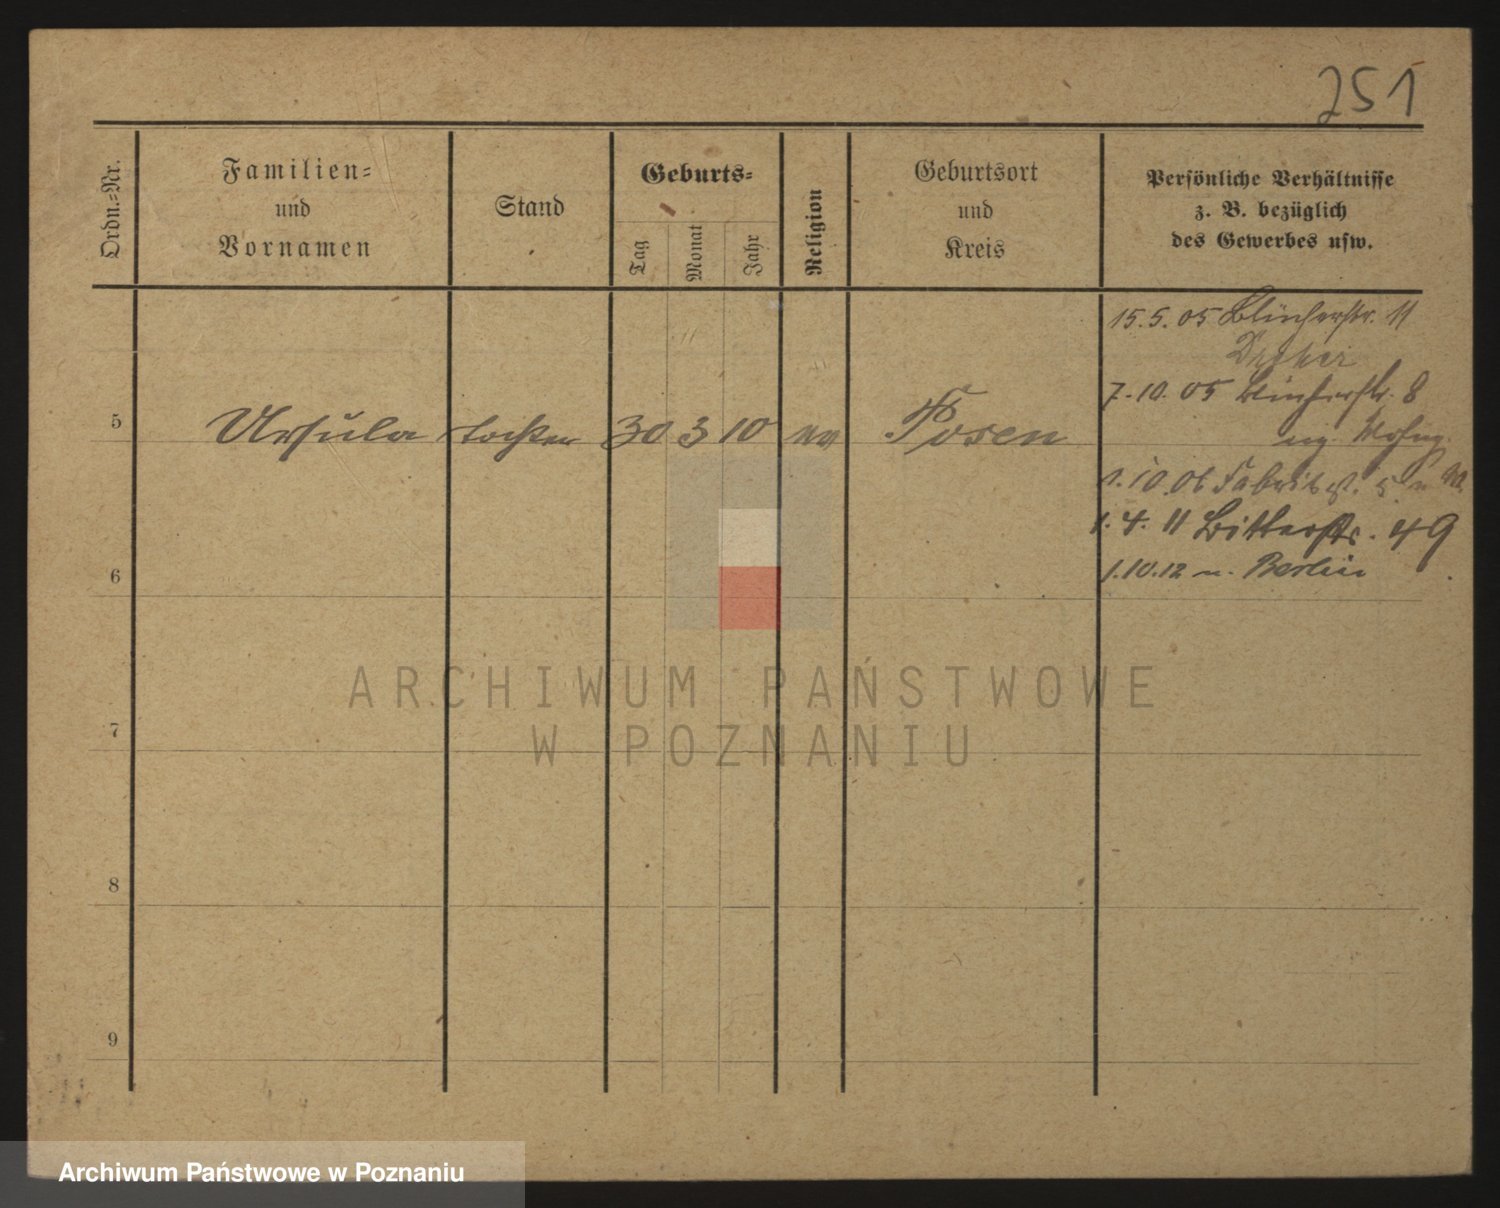 251
Ordn.-Nr.
Familien-
und
Vornamen
Stand
Geburts-
Tag
Monat
Jahr
Religion
Geburtsort
und
Kreis
Persönliche Verhältnisse
z. B. bezüglich
des Gewerbes usw.
15.5.05 Blücherstr. 11
7.10.05 Blücherstr. 8
5 Ursula Tochter 30 3 10 ev Posen
eig. Wohng.
1.10.06 Fabrikst.
1.4.11 Bitterstr. 49
6
1.10.12 n. Berlin
ARCHIWUM PAŃSTWOWE
W POZNANIU
7
8
9
Archiwum Państwowe w Poznaniu